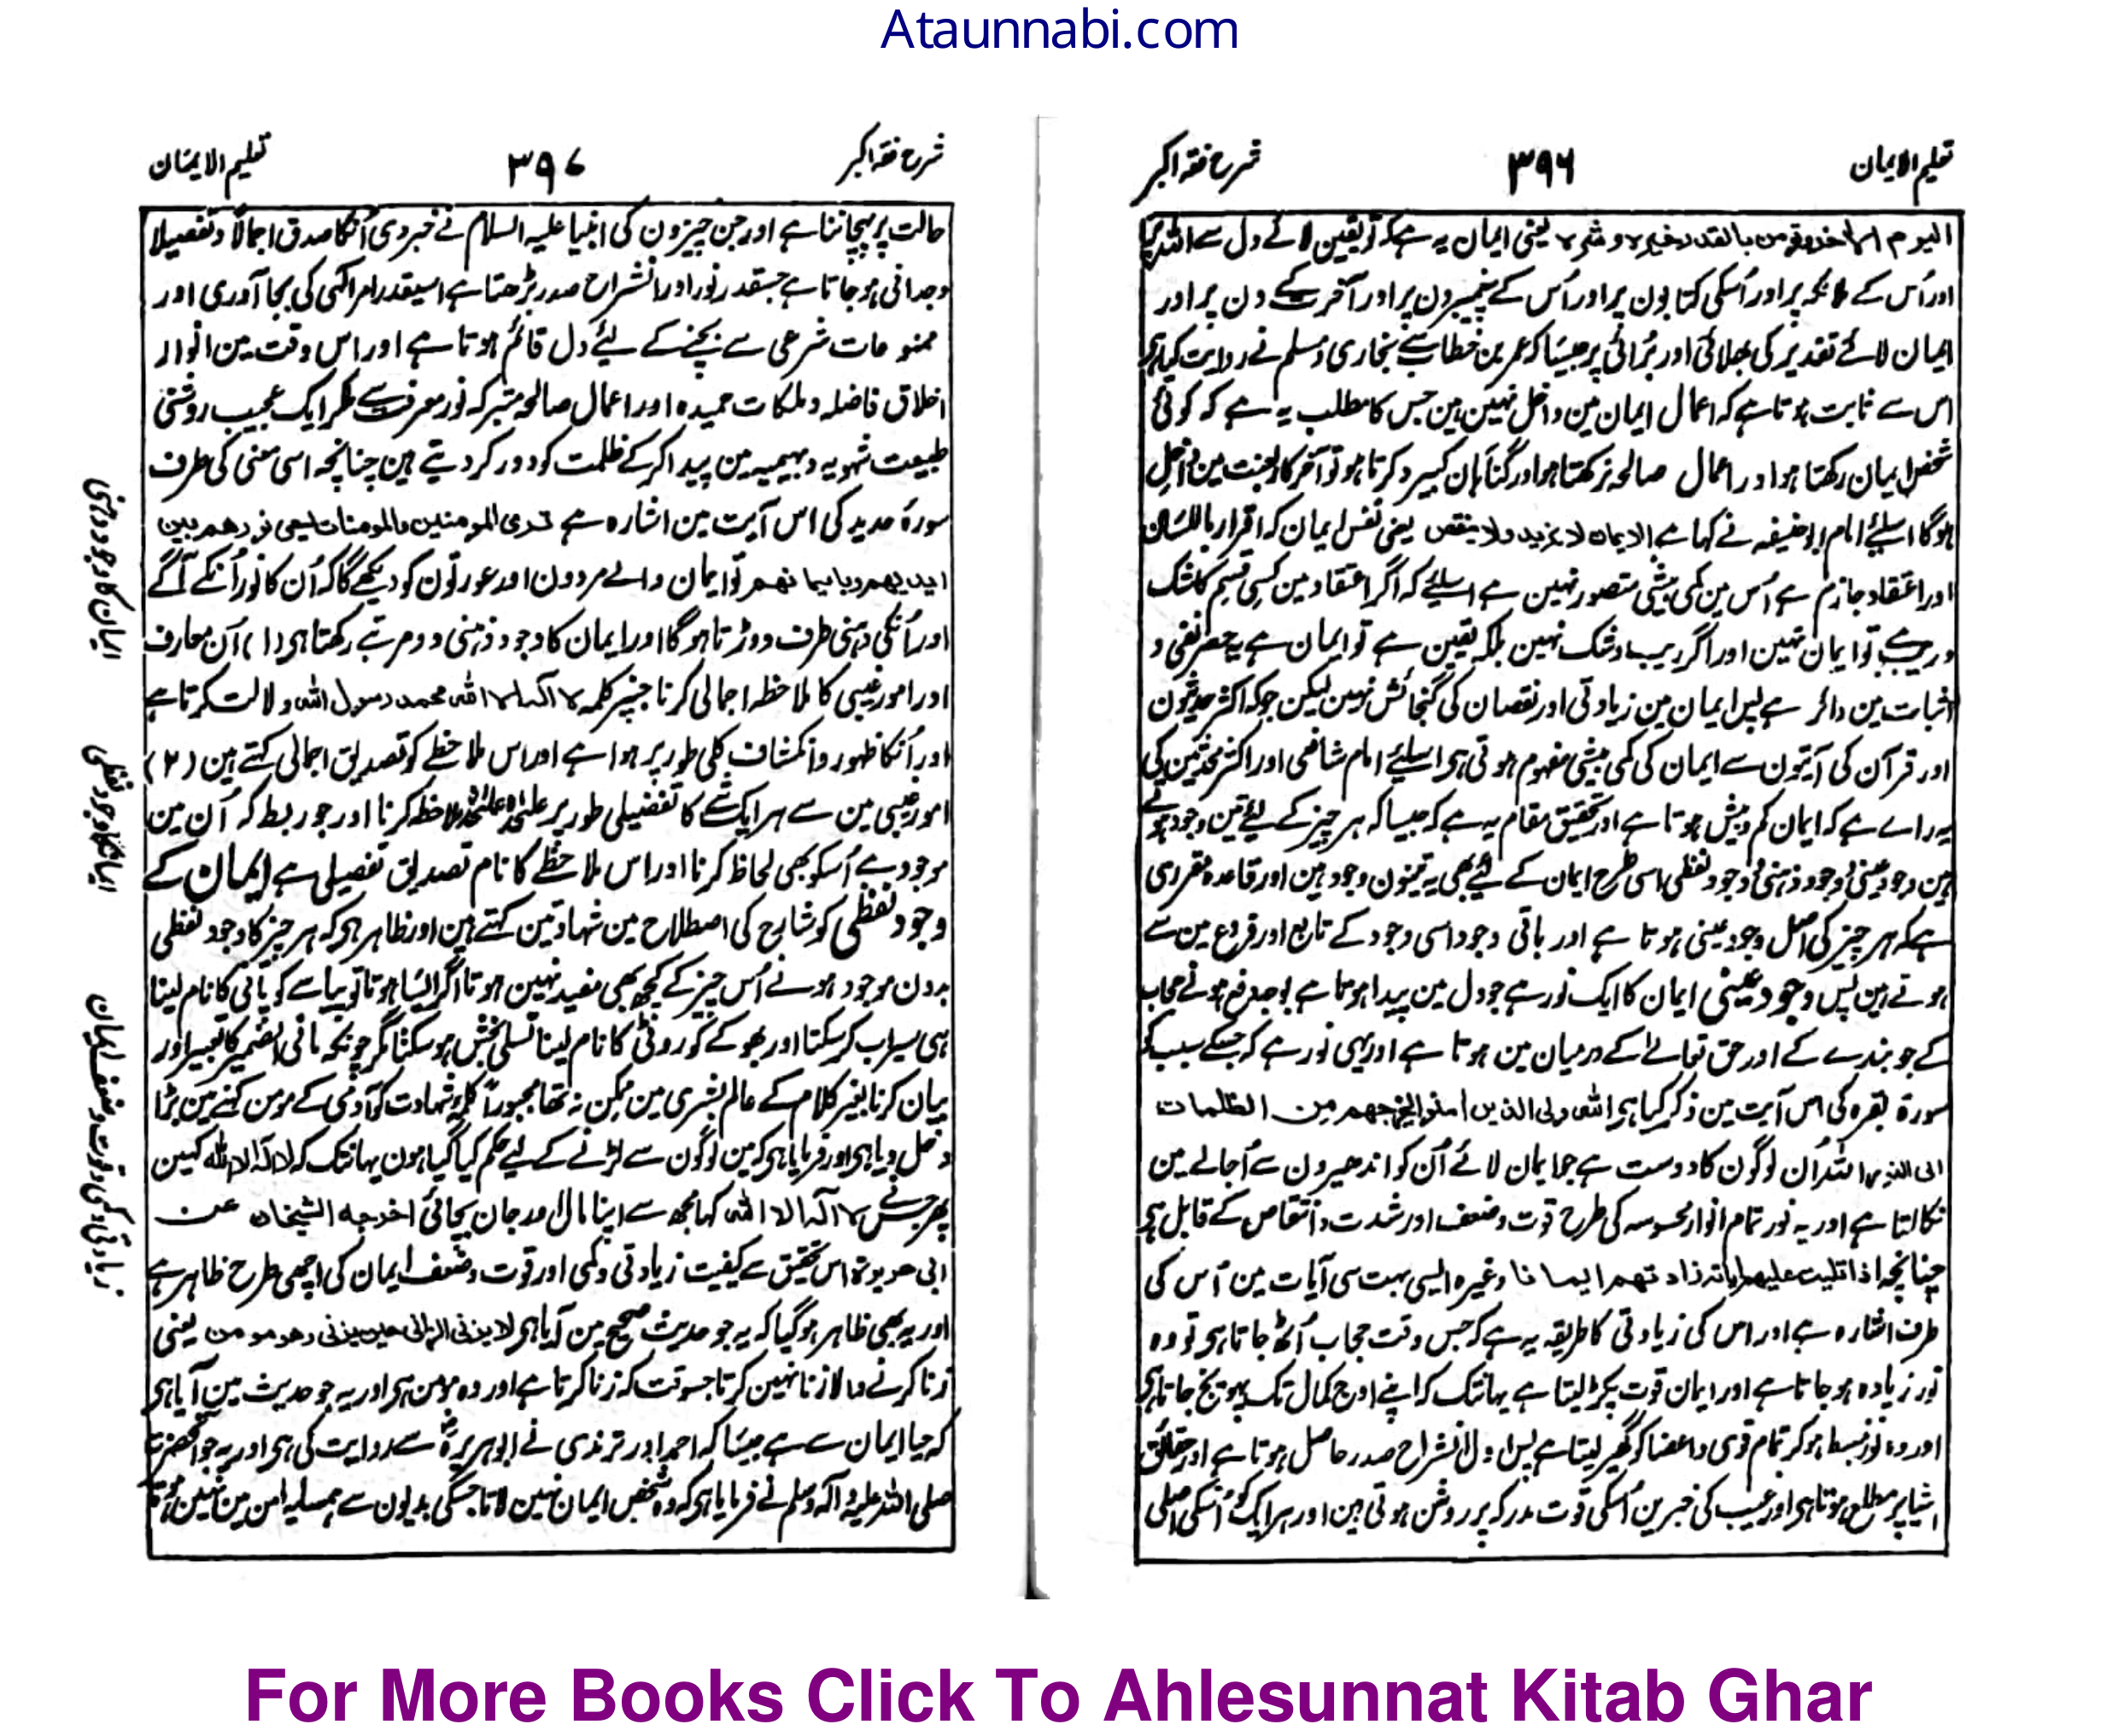 Ataunnabi.com
تعلیم الایمان
۳۹۶
شرح فقہ اکبر
الیوم الاخر وتومن بالقدر خیرہ وشرہ یعنی ایمان یہ ہے کہ تو یقین لائے دل سے اللہ پر
اور اُس کے ملائکہ پر اور اُسکی کتابون پر اور اُس کے پیغمبرون پر اور آخرت کے دن پر اور
ایمان لائے تقدیر کی بھلائی اور بُرائی پر جیسا کہ عمر بن خطاب سے بخاری و مسلم نے روایت کیا ہی
اس سے ثابت ہوتا ہے کہ اعمال ایمان مین داخل نہین ہین جس کا مطلب یہ ہے کہ کوئی
شخص ایمان رکھتا ہو اور اعمال صالحہ نرکھتا ہو اور گناہان کبیرہ کرتا ہو تو آخر کار جنت مین داخل
ہوگا اسلیئے امام ابوحنیفہ نے کہا ہے الایمان لا یزید ولا ینقص یعنی نفس ایمان کہ اقرار باللسان
اور اعتقاد جازم ہے اُس مین کمی بیشی متصور نہین ہے اسلیئے کہ اگر اعتقاد مین کسی قسم کا شک
و ریب ہے تو ایمان نہین اور اگر ریب و شک نہین بلکہ یقین ہے تو ایمان ہے یہ حصر نفی و
اثبات مین دائر ہے پس ایمان مین زیادتی اور نقصان کی گنجائش نہین لیکن جو کہ اکثر حدیثون
اور قرآن کی آیتون سے ایمان کی کمی بیشی مفہوم ہوتی ہی اسلیئے امام شافعی اور اکثر محدثین کی
یہ راے ہے کہ ایمان کم و بیش ہوتا ہے اور تحقیق مقام یہ ہے کہ جیسا کہ ہر چیز کے لیئے تین وجود ہوتے
ہین وجود عینی وجود ذہنی وجود لفظی اسی طرح ایمان کے لیئے بھی یہ تینون وجود ہین اور قاعدہ مقرری
ہے کہ ہر چیز کی اصل وجود عینی ہوتا ہے اور باقی وجود اسی وجود کے تابع اور فروع مین سے
ہوتے ہین پس وجود عینی ایمان کا ایک نور ہے جو دل مین پیدا ہوتا ہے بوجہ رفع ہونے حجاب
کے جو بندے کے اور حق تعالےٰ کے درمیان مین ہوتا ہے اور یہی نور ہے کہ جسکے سبب کو
سورۃ بقرہ کی اس آیت مین ذکر کیا ہی اللہ ولی الذین امنوا یخرجھم من الظلمات
الی النور اللہ اُن لوگون کا دوست ہے جو ایمان لائے اُن کو اندھیرون سے اُجالے مین
نکالتا ہے اور یہ نور تمام انوار محسوسہ کی طرح قوت و ضعف اور شدت و انتقاص کے قابل ہی
چنانچہ اذا تلیت علیھم ایاتہ زادتھم ایمانا وغیرہ ایسی بہت سی آیات مین اُس کی
طرف اشارہ ہے اور اس کی زیادتی کا طریقہ یہ ہے کہ جس وقت حجاب اُٹھ جاتا ہی تو وہ
نور زیادہ ہو جاتا ہے اور ایمان قوت پکڑ لیتا ہے یہانتک کہ اپنے اوج کمال تک پہونچ جاتا ہی
اور وہ نور مبسط ہو کر تمام قوی و اعضا کو گھیر لیتا ہے پس اول انشراح صدر حاصل ہوتا ہے اور حقائق
اشیا پر مطلع ہوتا ہی اور غیب کی خبرین اُسکی قوت مدرکہ پر روشن ہوتی ہین اور ہر ایک کو اُسکی اصلی
شرح فقہ اکبر
۳۹۷
تعلیم الایمان
حالت پر پہچانتا ہے اور جن چیزون کی انبیا علیہ السلام نے خبر دی اُنکا صدق اجمالًا و تفصیلًا
وجدانی ہو جاتا ہے جسقدر نور اور انشراح صدر بڑھتا ہے اسیقدر امر الٰہی کی بجا آوری اور
ممنوعات شرعی سے بچنے کے لیئے دل قائم ہوتا ہے اور اس وقت مین انوار
اخلاق فاضلہ و ملکات حمیدہ اور اعمال صالحہ متبرکہ نور معرفت سے ملکر ایک عجیب روشنی
طبیعت شہویہ و بہیمیہ مین پیدا کر کے ظلمت کو دور کر دیتے ہین چنانچہ اسی معنی کی طرف
سورۂ حدید کی اس آیت مین اشارہ ہے تری المومنین والمومنات یسعی نورھم بین
ایدیھم وبایمانھم تو ایمان والے مردون اور عورتون کو دیکھے گا کہ اُن کا نور اُنکے آگے
اور اُنکی دہنی طرف دوڑتا ہوگا اور ایمان کا وجود ذہنی دو مرتبے رکھتا ہی (۱) اُن معارف
اور امور غیبی کا ملاحظہ اجمالی کرنا جنپر کلمہ لا الہ الا اللہ محمد رسول اللہ دلالت کرتا ہے
اور اُنکا ظہور و انکشاف کلی طور پر ہوا ہے اور اس ملاحظے کو تصدیق اجمالی کہتے ہین (۲)
امور غیبی مین سے ہر ایک شے کا تفصیلی طور پر علیحدہ علیحدہ ملاحظہ کرنا اور جو ربط کہ اُن مین
موجود ہے اُسکو بھی لحاظ کرنا اور اس ملاحظے کا نام تصدیق تفصیلی ہے ایمان کے
وجود لفظی کو شارع کی اصطلاح مین شہادتین کہتے ہین اور ظاہر ہی کہ ہر چیز کا وجود لفظی
بدون موجود ہونے اُس چیز کے کچھ بھی مفید نہین ہوتا اگر ایسا ہوتا تو پیاسے کو پانی کا نام لینا
ہی سیراب کر سکتا اور بھوکے کو روٹی کا نام لینا تسلی بخش ہو سکتا مگر چونکہ مافی الضمیر کا تعبیر اور
بیان کرنا بغیر کلام کے عالم بشری مین ممکن نہ تھا مجبورًا کلمۂ شہادت کو آدمی کے مومن کہنے مین بڑا
دخل دیا ہی اور فرمایا ہی کہ مین لوگون سے لڑنے کے لیے حکم کیا گیا ہون یہانتک کہ لا الہ الا اللہ کہین
پھر جسنے لا الہ الا اللہ کہا مجھ سے اپنا مال اور جان بچائی اخرجہ الشیخان عن
ابی ھریرۃ اس تحقیق سے کیفیت زیادتی و کمی اور قوت و ضعف ایمان کی اچھی طرح ظاہر ہے
اور یہ بھی ظاہر ہو گیا کہ یہ جو حدیث صحیح مین آیا ہی لا یزنی الزانی حین یزنی وھو مومن یعنی
زنا کرنے والا زنا نہین کرتا جسوقت کہ زنا کرتا ہے اور وہ مومن ہی اور یہ جو حدیث مین آیا ہی
کہ حیا ایمان سے ہے جیسا کہ احمد اور ترمذی نے ابو ہریرہؓ سے روایت کی ہی اور یہ جو آنحضرت
صلی اللہ علیہ و آلہ وسلم نے فرمایا ہی کہ وہ شخص ایمان نہین لاتا جسکی بدیون سے ہمسایہ امن مین نہین ہوتا
ایمان کا وجود ذہنی
ایمان کا وجود لفظی
زیادتی و کمی و قوت و ضعف ایمان
For More Books Click To Ahlesunnat Kitab Ghar